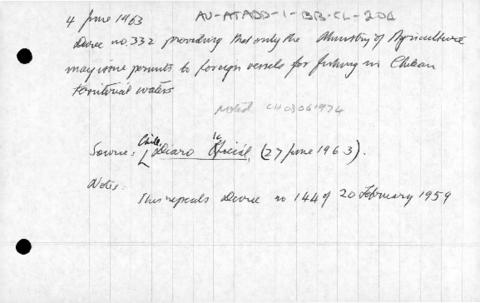 4 June 1963 AU-ATADD-1-BB-CL-206
Decree no. 332 providing that only the Ministry of Agriculture
may issue permits to foreign vessels for fishing in Chilean
territorial waters
noted
Source: Chile, Diaro Oficial, (27 June 1963).
Notes:
This repeals Decree no 144 of 20 February 1959